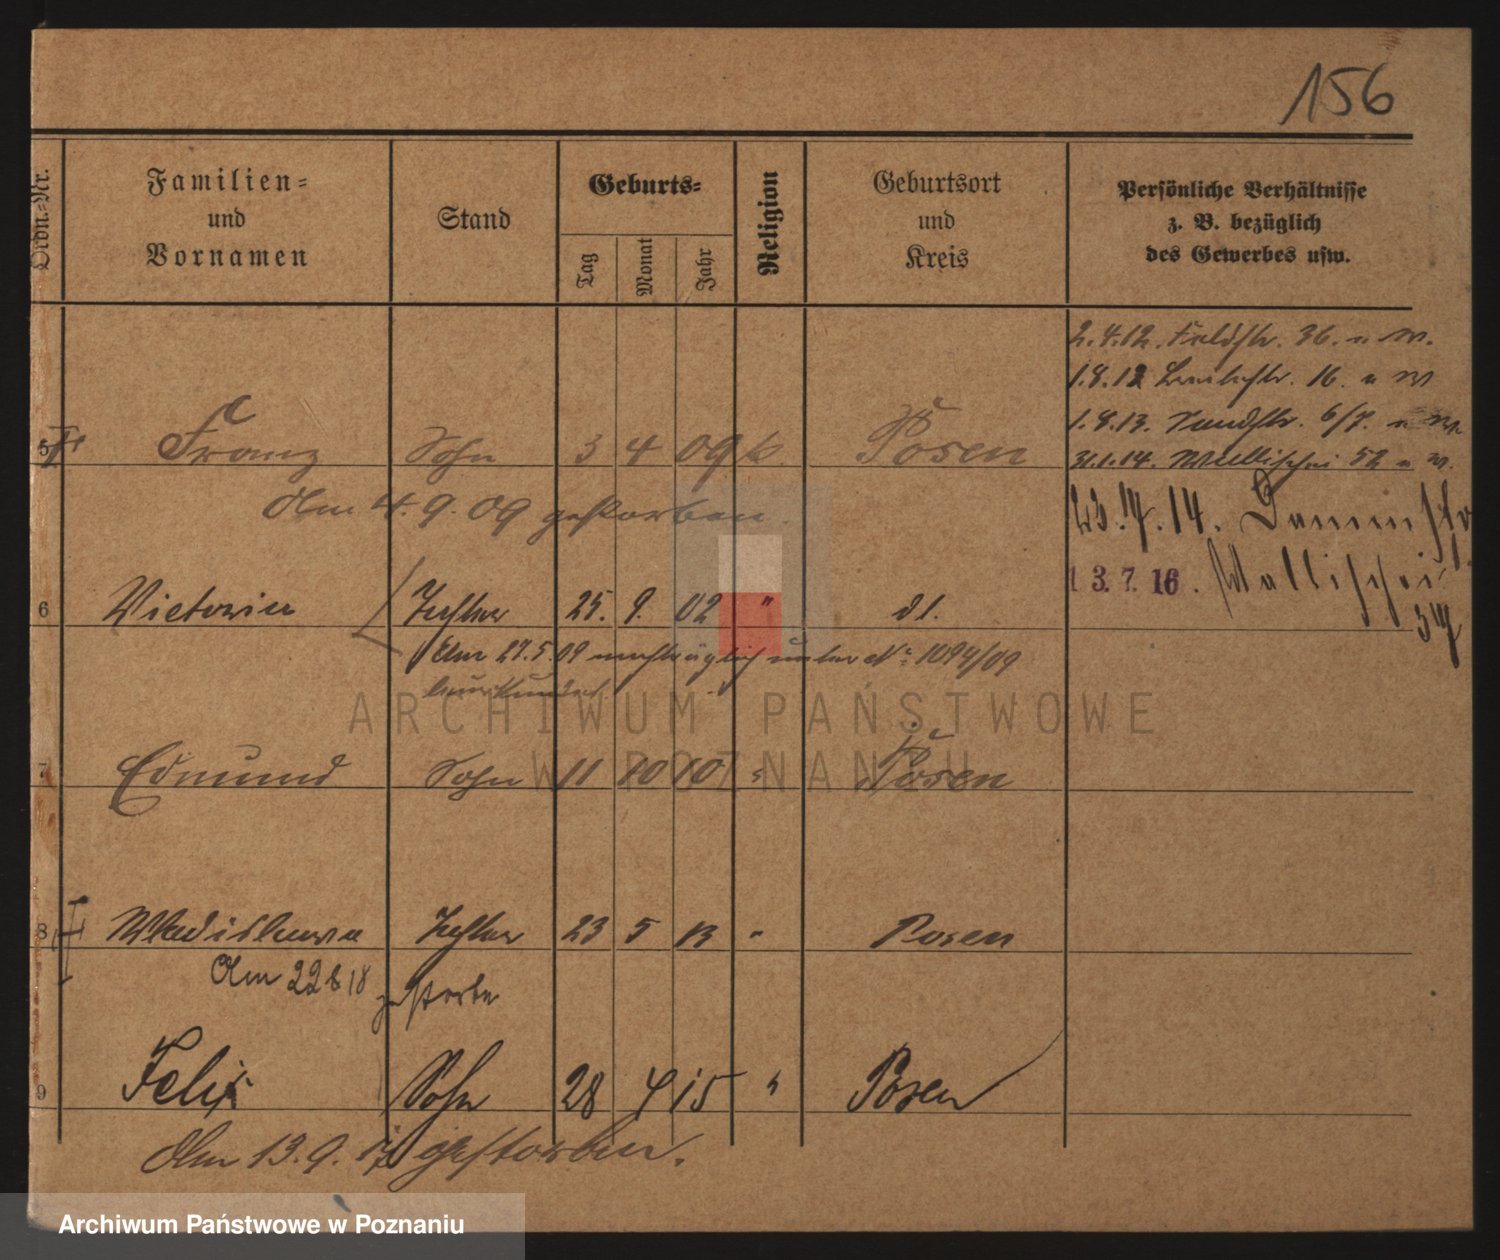 156
Ordn.-Nr.
Familien-
und
Vornamen
Stand
Geburts-
Tag
Monat
Jahr
Religion
Geburtsort
und
Kreis
Persönliche Verhältnisse
z. B. bezüglich
des Gewerbes usw.
2.4.12. Feldstr. 36.
1.8.12 16.
1.8.13. Sandstr. 6/7.
31.1.14. Wallischei 52
5 Franz Sohn 3 4 09 k. Posen
Am 4.9.09 gestorben.
23.4.14. Damm
13.7.16. Wallischei
6 Victoria Tochter 25. 9. 02 " dt.
Am 27.5.09 nachträglich unter No 1094/09
beurkundet
ARCHIWUM PAŃSTWOWE
W POZNANIU
7 Edmund Sohn 11 10 10 " Posen
8 Wladislawa Tochter 23 5 13 " Posen
Am 22 6 18 gestorben
9 Felix Sohn 28 4 15 " Posen
Am 13.9.17 gestorben.
Archiwum Państwowe w Poznaniu